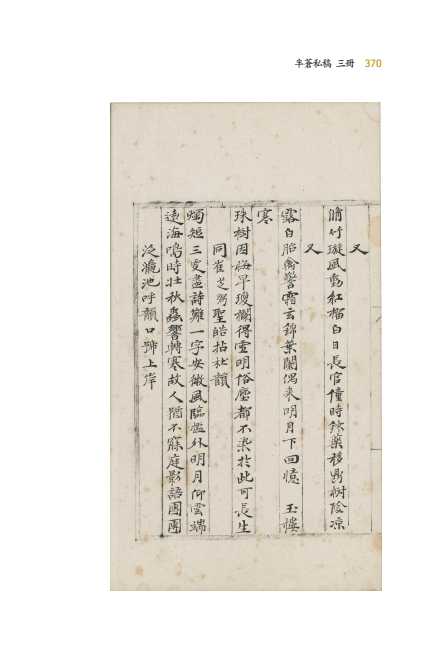 半蒼私稿 三冊 370
又
脩竹風動紅榴白日長官僮時煉藥移鼎樹陰凉
又
露白胎禽警霜玄錦葉闌偶來明月下回憶 玉樓
寒
珠樹因梅早瓊欄得雪明俗塵都不染於此可長生
同崔芝弼聖皓拈杜韻
燭短三更盡詩難一字安微風臨檻外明月仰雲端
遠海鳴時壯秋蟲響轉寒故人猶不寐庭影語團團
泛池呼韻口號上岸